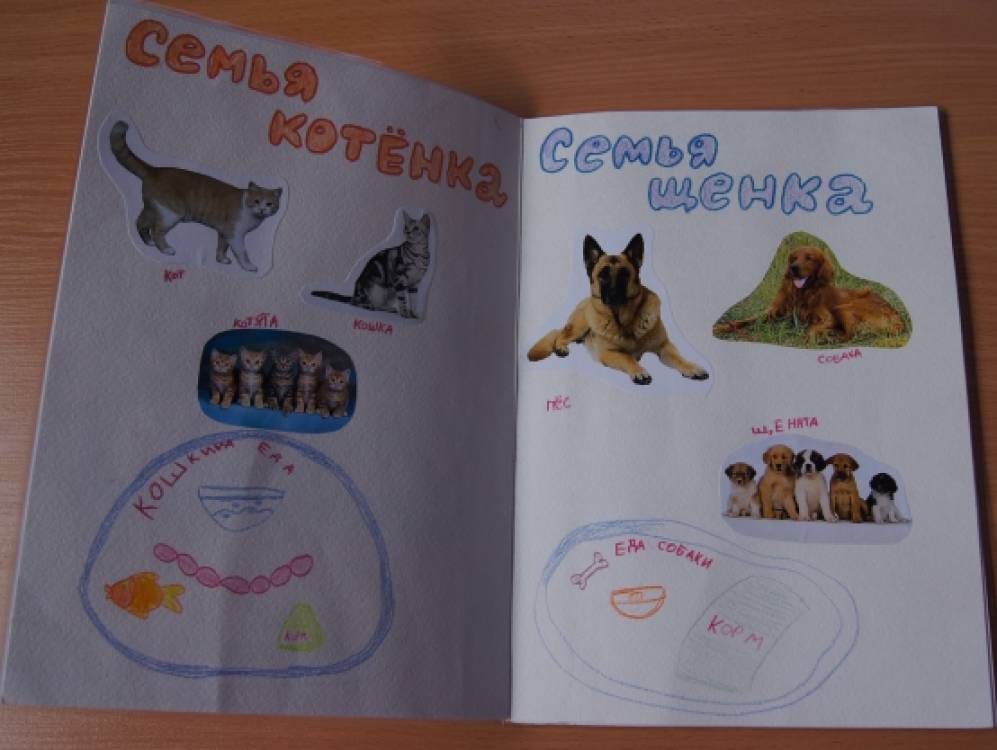 Семья
котёнка
кот
кошка
котята
кошкина еда
Семья
щенка
пёс
собака
щенята
еда собаки
корм